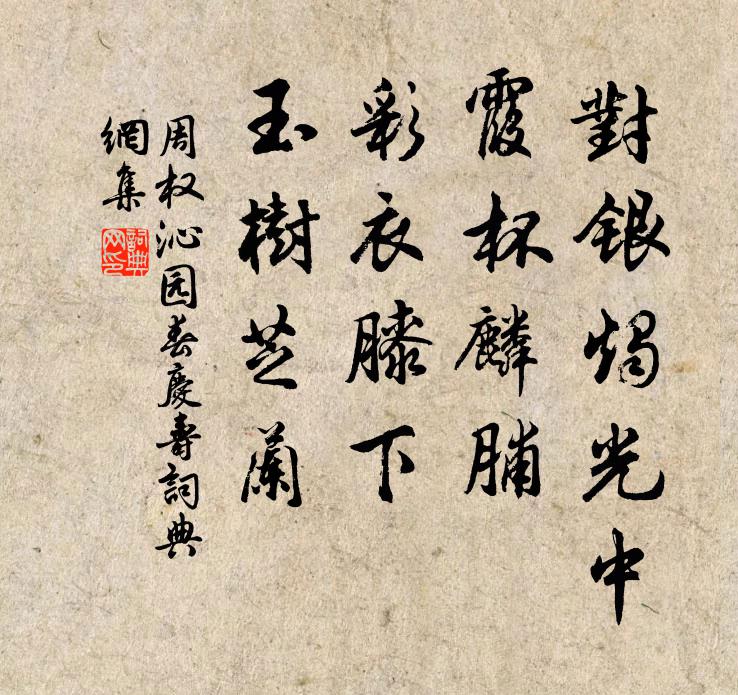 對銀燭光中
霞杯麟脯
彩衣膝下
玉樹芝蘭
周权沁园春慶壽詞典
網集
詞典網印